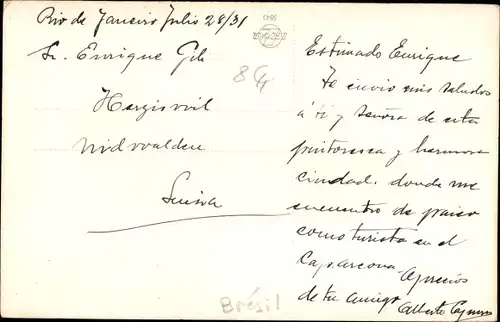 Rio de Janeiro Julio 28/31
Sr. Enrique
Hergiswil
Nidwalden
Suiza
8
Estimado Enrique
Te envio mis saludos
á ti y señora de esta
pintoresca y hermosa
ciudad. donde me
encuentro de paseo
como turista en el
Cap. arcona.
de tu amigo
Alberto
Brésil